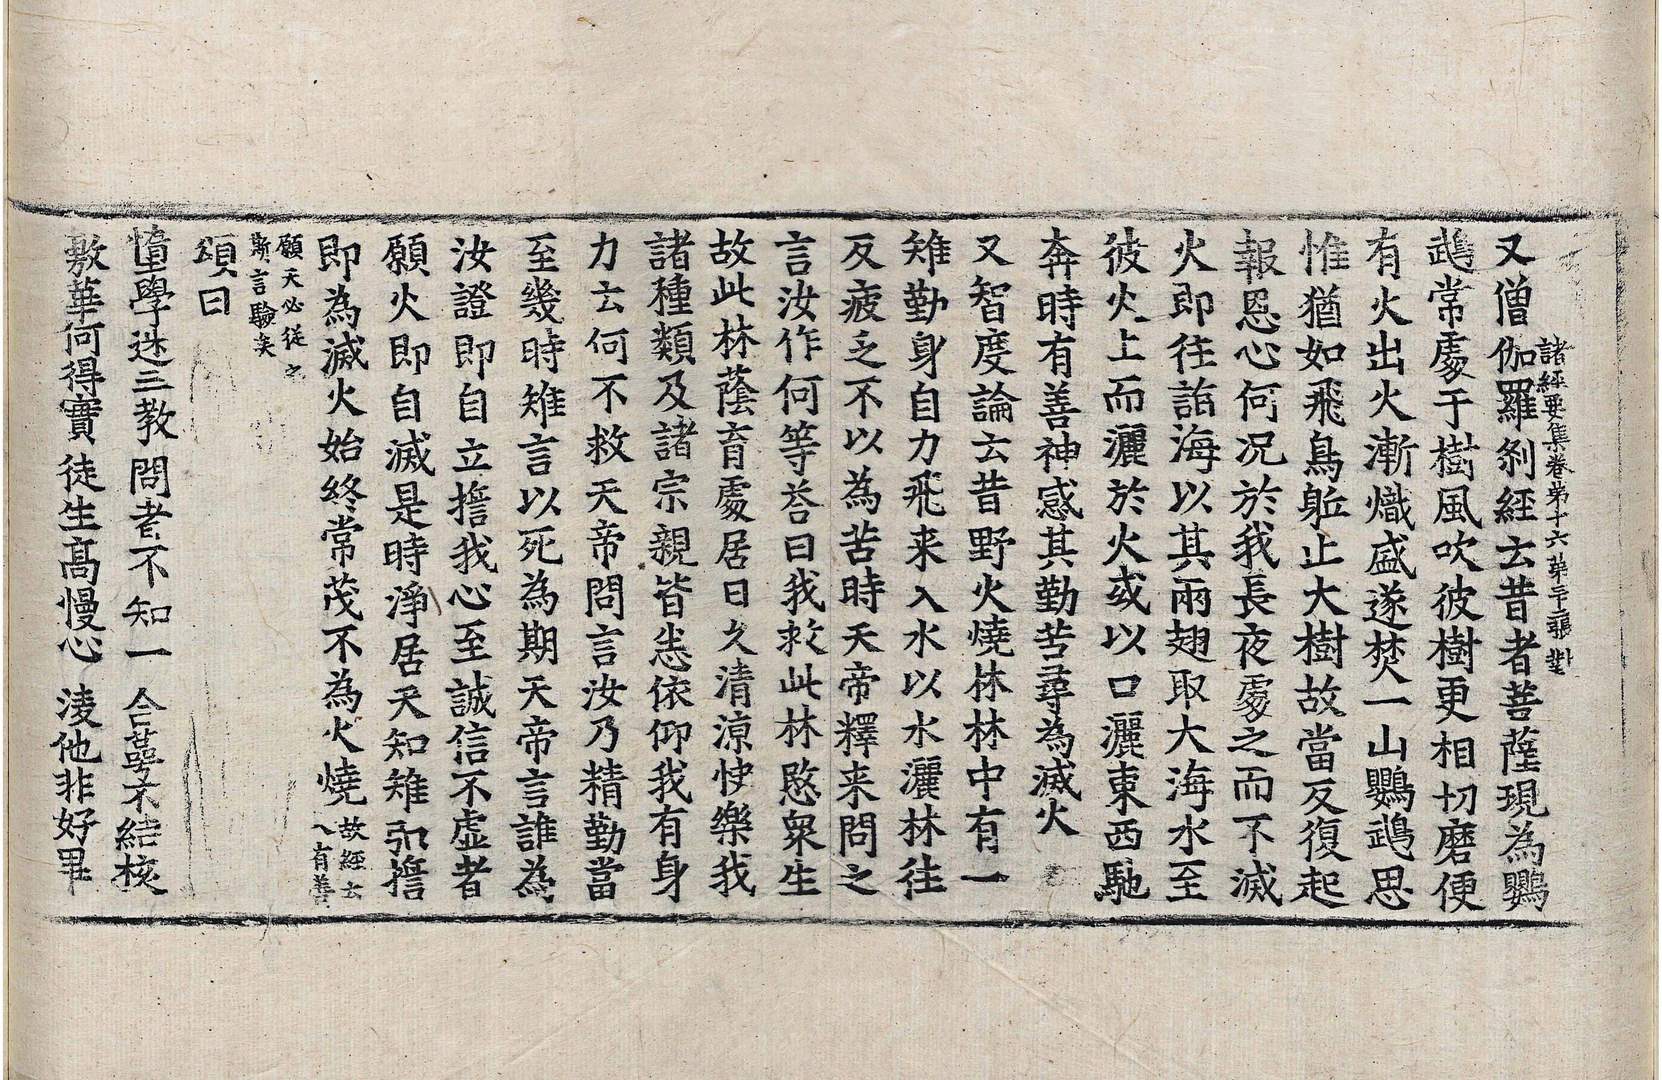 諸經要集卷第十六第三十張對
又僧伽羅刹經云昔者菩薩現為鸚
鵡常處于樹風吹彼樹更相切磨便
有火出火漸熾盛遂焚一山鸚鵡思
惟猶如飛鳥𨈭止大樹故當反復起
報恩心何况於我長夜處之而不滅
火即往詣海以其兩翅取大海水至
彼火上而灑於火或以口灑東西馳
奔時有善神感其勤苦尋為滅火
又智度論云昔野火燒林林中有一
雉勤身自力飛来入水以水灑林往
反疲乏不以為苦時天帝釋来問之
言汝作何等荅曰我救此林愍衆生
故此林蔭育處居日久清涼快樂我
諸種類及諸宗親皆悉依仰我有身
力云何不救天帝問言汝乃精勤當
至幾時雉言以死為期天帝言誰為
汝證即自立擔我心至誠信不虛者
願火即自滅是時淨居天知雉弘擔
即為滅火始終常茂不為火燒故經云人有善
願天必從之斯言驗矣
頌曰
憃學迷三教 問者不知一 合蕚不結核
敷華何得實 徒生高慢心 淩他非好畢